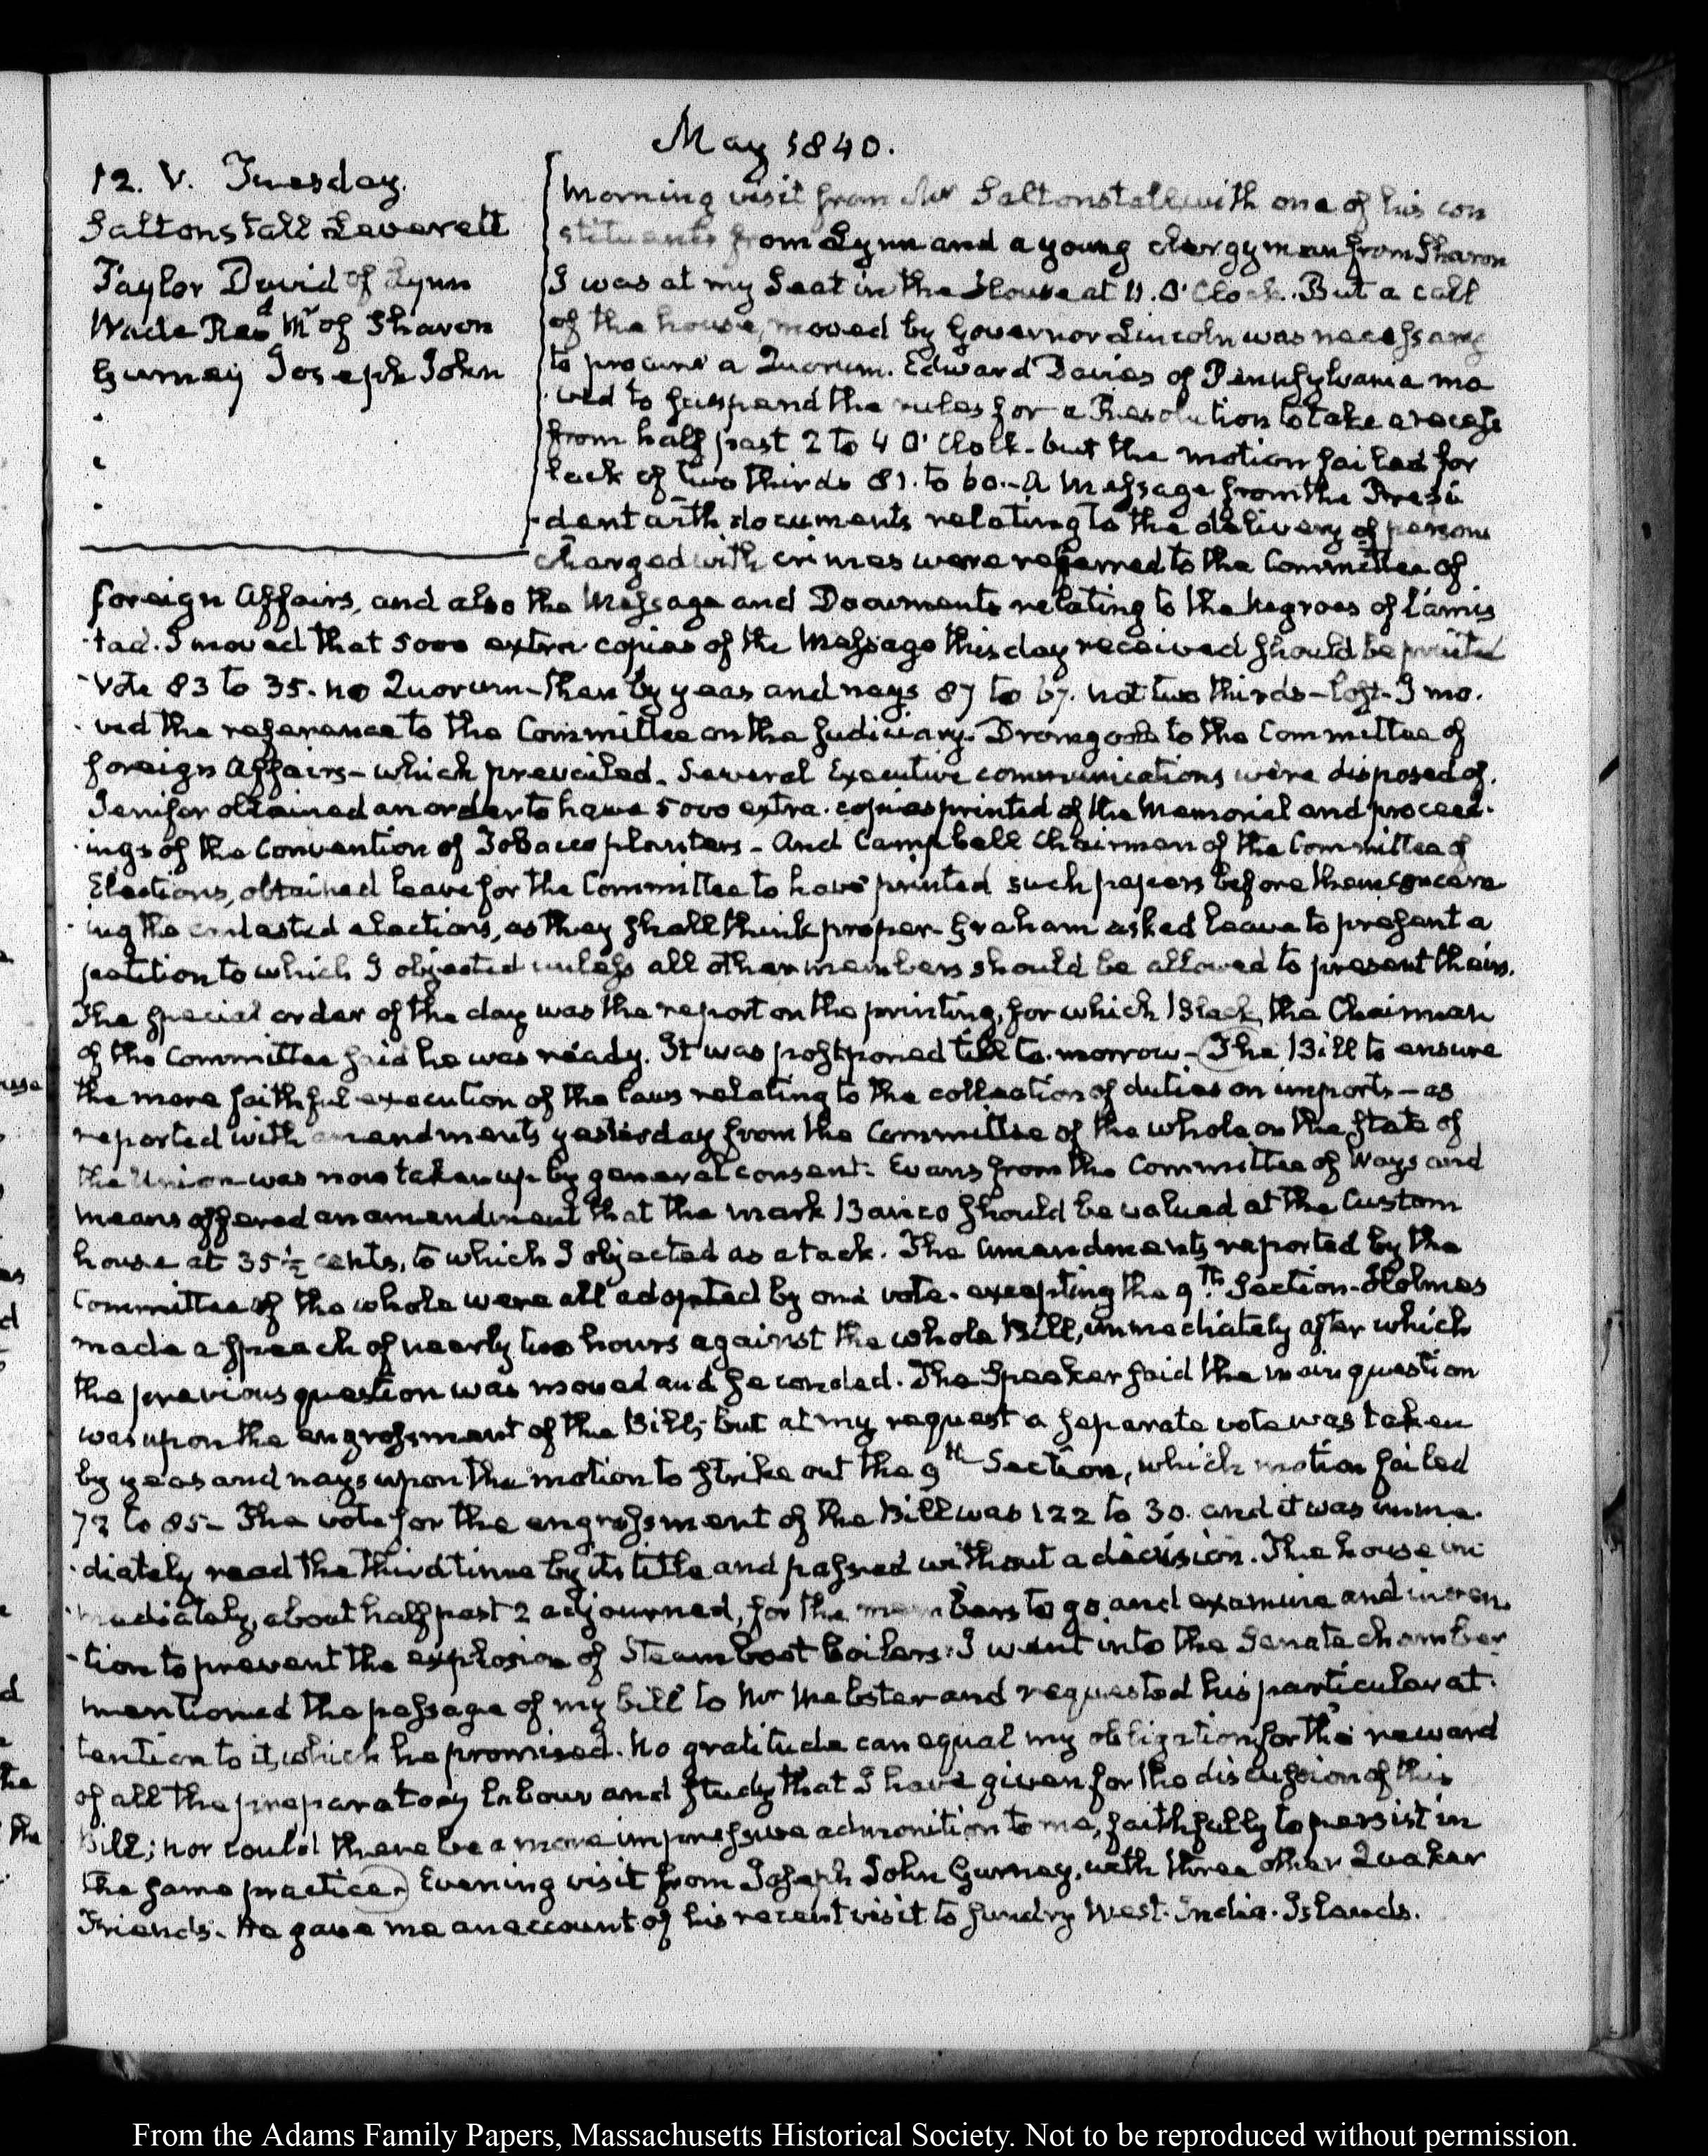 May 1840.
12. V. Tuesday.
Saltonstall Leverett
Taylor David of Lynn
Wade Revd Mr of Sharon
Gurney Joseph John
Morning visit from Mr Saltonstall with one of his con
stituents from Lynn and a young clergyman from Sharon
I was at my Seat in the House at 11. O'Clock. But a call
of the house, moved by Governor Lincoln was necessary
to procure a Quorum. Edward Davies of Pennsylvania mo
ved to suspend the rules for a Resolution to take a recess
from half past 2 to 4 O'Clock. but the motion failed for
lack of two thirds 81. to 60.- A Message from the Presi
dent with documents relating to the delivery of persons
charged with crimes were referred to the Committee of
foreign Affairs, and also the Message and Documents relating to the Negroes of l'Amis
tad. I moved that 5000 extra copies of the Message this day received should be printed
Vote 83 to 35. no Quorum- then by yeas and nays 87 to 67. not two thirds- lost- I mo.
ved the reference to the Committee on the Judiciary. Dromgoole to the Committee of
foreign Affairs- which prevailed. Several Executive communications were disposed of.
Jenifer obtained an order to have 5000 extra. copies printed of the Memorial and proceed.
ings of the Convention of Tobacco planters- And Campbell Chairman of the Committee of
Elections, obtained leave for the Committee to have printed such papers before them concern
ing the contested elections, as they shall think proper- Graham asked leave to present a
petition to which I objected unless all other members should be allowed to present theirs.
The special order of the day was the report on the printing, for which Black, the Chairman
of the Committee said he was ready. It was postponed till to-morrow- The Bill to ensure
the more faithful execution of the laws relating to the collection of duties on imports- as
reported with amendments yesterday from the Committee of the whole on the State of
the Union was now taken up by general consent. Evans from the Committee of Ways and
Means offered an amendment that the mark Banco should be valued at the Custom
house at 35 1/2 cents, to which I objected as a tack. The Amendments reported by the
Committee of the whole were all adopted by one vote- excepting the 9th. Section- Holmes
made a speech of nearly two hours against the whole Bill, immediately after which
the previous question was moved and seconded. The Speaker said the main question
was upon the engrossment of the Bill; but at my request a separate vote was taken
by yeas and nays upon the motion to strike out the 9th Section, which motion failed
72 to 85- The vote for the engrossment of the Bill was 122 to 30. and it was imme.
diately read the third time by its title and passed without a division. The house im
mediately, about half past 2 adjourned, for the members to go and examine and inven.
tion to prevent the explosion of Steam boat boilers. I went into the Senate chamber
mentioned the passage of my bill to Mr Webster and requested his particular at.
tention to it, which he promised. No gratitude can equal my obligation for the reward
of all the preparatory labour and study that I have given for the discussion of this
Bill; nor could there be a more impressive admonition to me, faithfully to persist in
the same practice. Evening visit from Joseph John Gurney, with three other Quaker
Friends. He gave me an account of his recent visit to sundry West-India-Islands.
From the Adams Family Papers, Massachusetts Historical Society. Not to be reproduced without permission.